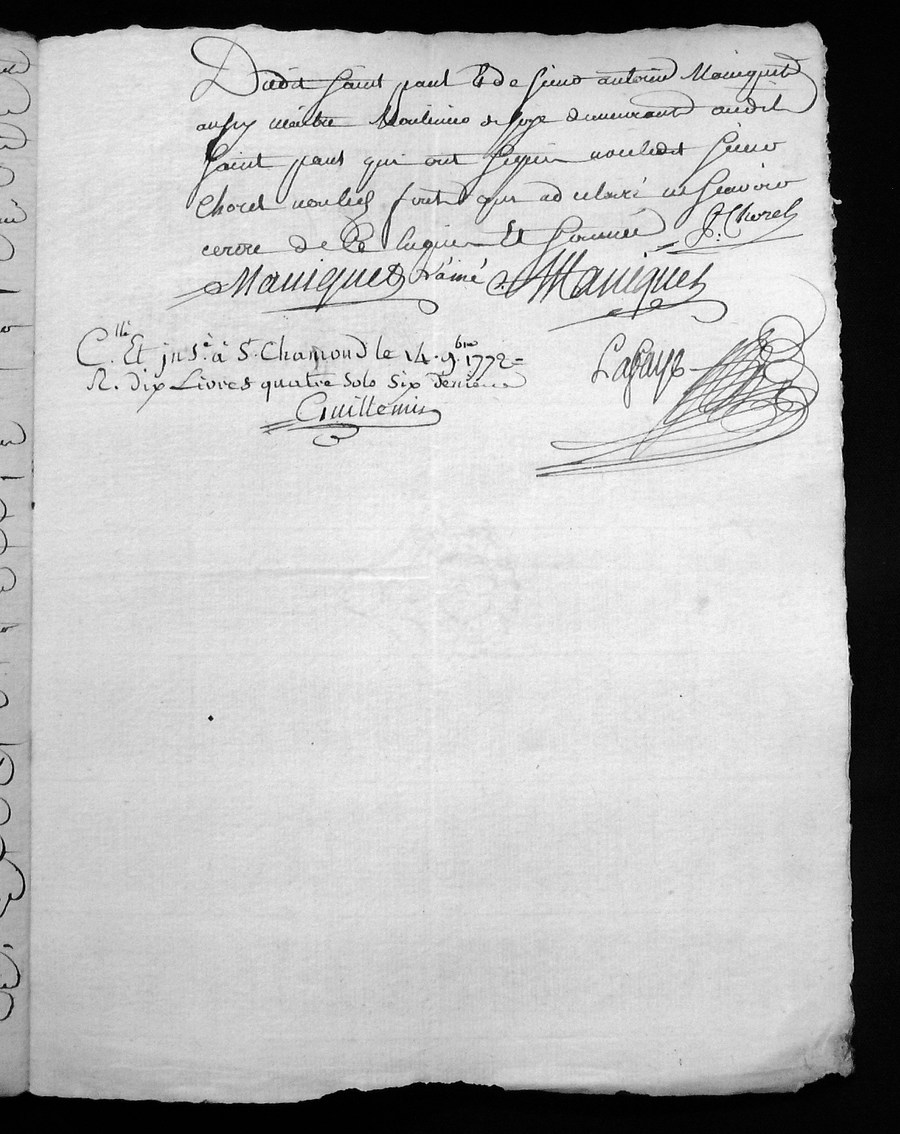 Dudit Saint paul Et de Sieur antoine Maniquet
aussy maitre Moulinier de soye demeurant audit
Saint paul qui ont signé ledit Sieur
Choret non led qui a declaré ne scavoir
de ce Enquis Et Sommé J. Choret
Maniquet L'ainé Maniquet
C.lle Et jns.é à St. Chamond le 14. 9.bre 1772 =
R. dix Livres quatre Sols Six deniers Lafaye
Guillemin